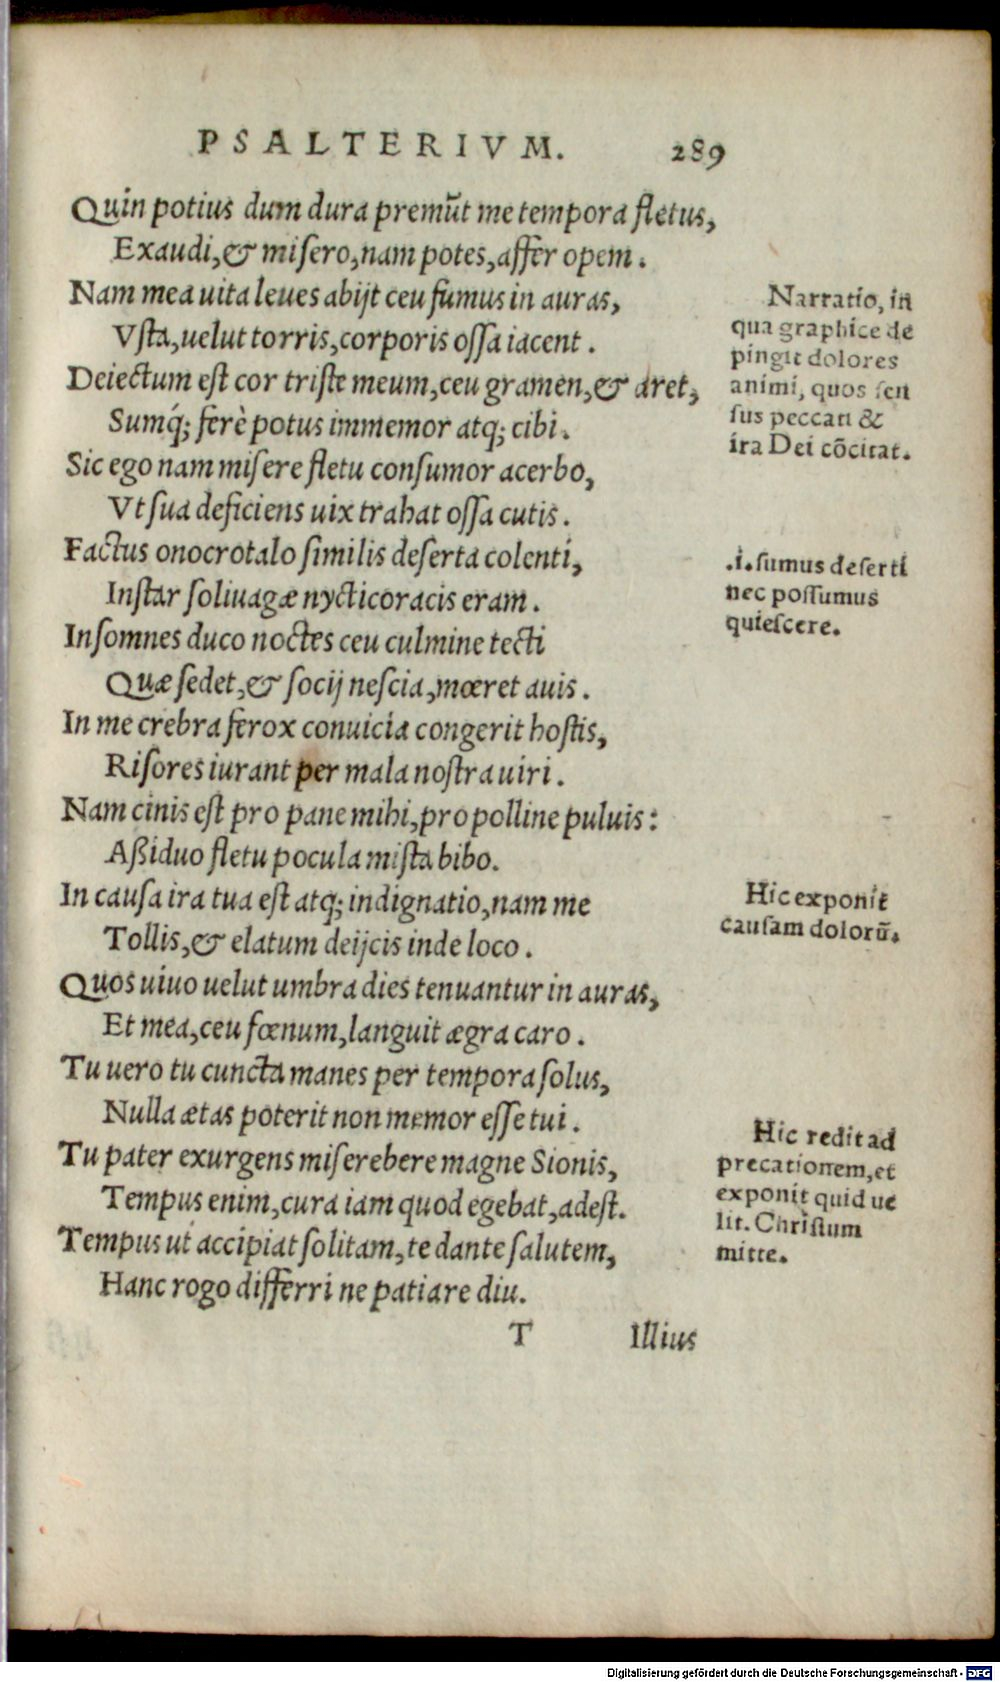 PSALTERIVM. 289
Quin potius dum dura premũt me tempora fletus,
Exaudi, & miſero, nam potes, affer opem.
Nam mea uita leues abijt ceu fumus in auras,
Vſta, uelut torris, corporis oſſa iacent.
Deiectum eſt cor triſte meum, ceu gramen, & aret,
Sumq́; ferè potus immemor atq; cibi.
Sic ego nam miſere fletu conſumor acerbo,
Vt ſua deficiens uix trahat oſſa cutis.
Factus onocrotalo ſimilis deſerta colenti,
Inſtar ſoliuagæ nycticoracis eram.
Inſomnes duco noctes ceu culmine tecti
Quæ ſedet, & ſocij neſcia, mœret auis.
In me crebra ferox conuicia congerit hoſtis,
Riſores iurant per mala noſtra uiri.
Nam cinis eſt pro pane mihi, pro polline puluis:
Aßiduo fletu pocula miſta bibo.
In cauſa ira tua eſt atq; indignatio, nam me
Tollis, & elatum deijcis inde loco.
Quos uiuo uelut umbra dies tenuantur in auras,
Et mea, ceu fœnum, languit ægra caro.
Tu uero tu cuncta manes per tempora ſolus,
Nulla ætas poterit non memor eſſe tui.
Tu pater exurgens miſerebere magne Sionis,
Tempus enim, cura iam quod egebat, adeſt.
Tempus ut accipiat ſolitam, te dante ſalutem,
Hanc rogo differri ne patiare diu.
T Illius
Narratio, in
qua graphice de
pingit dolores
animi, quos ſen
ſus peccati &
ira Dei cõcitat.
.i. ſumus deſerti
nec poſſumus
quieſcere.
Hic exponit
cauſam dolorũ.
Hic redit ad
precationem, et
exponit quid ue
lit. Chriſtum
mitte.
Digitalisierung gefördert durch die Deutsche Forschungsgemeinschaft - DFG